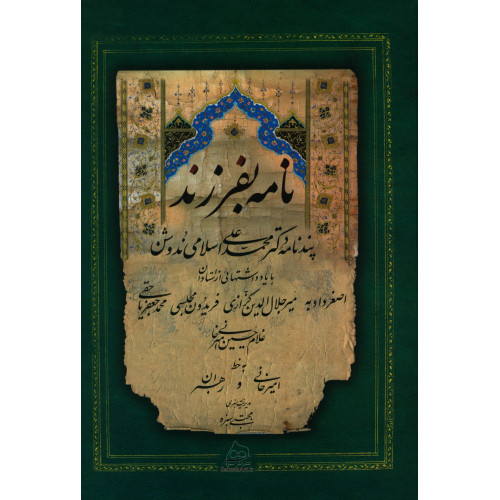 نامه بفرزند
پندنامه دکتر محمد علی اسلامی ندوشن
با یادداشتهائی از استادان
اصغر دادبه میر جلال الدین کزازی فریدون مجلسی محمد جعفر یاحقی
غلامحسین امیرخانی
به خط
امیرخانی و رهبران
مجتبی سبزه